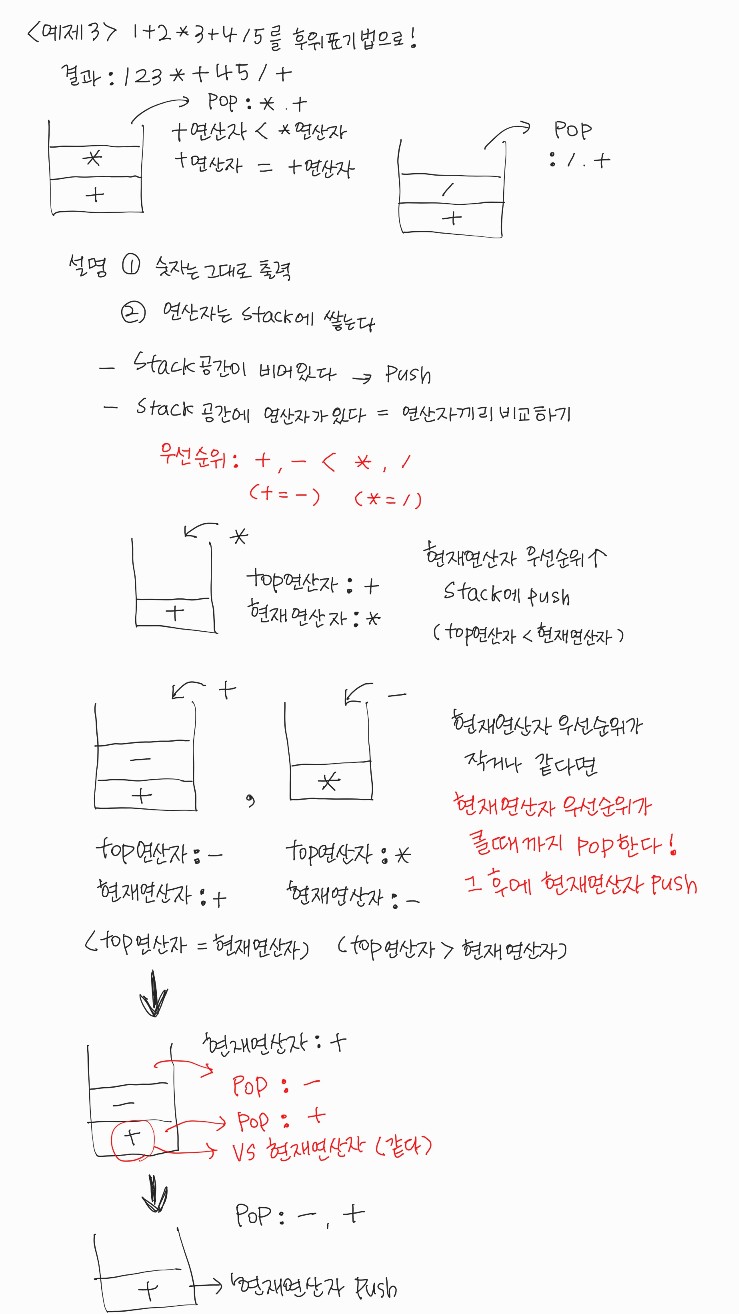 <예제3> 1+2*3+4/5를 후위표기법으로!
결과 : 123*+45/+
POP : * . +
+연산자 < *연산자
+연산자 = +연산자
*
+
POP
: / . +
/
+
설명 ① 숫자는 그대로 출력
② 연산자는 Stack에 쌓는다
- Stack공간이 비어있다 → Push
- Stack 공간에 연산자가 있다 = 연산자끼리 비교하기
우선순위 : +, - < *, /
(+=-) (*=/)
*
+
top연산자 : +
현재연산자 : *
현재연산자 우선순위↑
Stack에 push
(top연산자 < 현재연산자)
+
-
+
,
-
*
현재연산자 우선순위가
작거나 같다면
현재연산자 우선순위가
클때까지 POP한다!
그 후에 현재연산자 Push
top연산자 : -
현재연산자 : +
top연산자 : *
현재연산자 : -
(top연산자 = 현재연산자) (top연산자 > 현재연산자)
현재연산자 : +
-
+
POP : -
POP : +
VS 현재연산자 (같다)
POP : -, +
+
현재연산자 Push